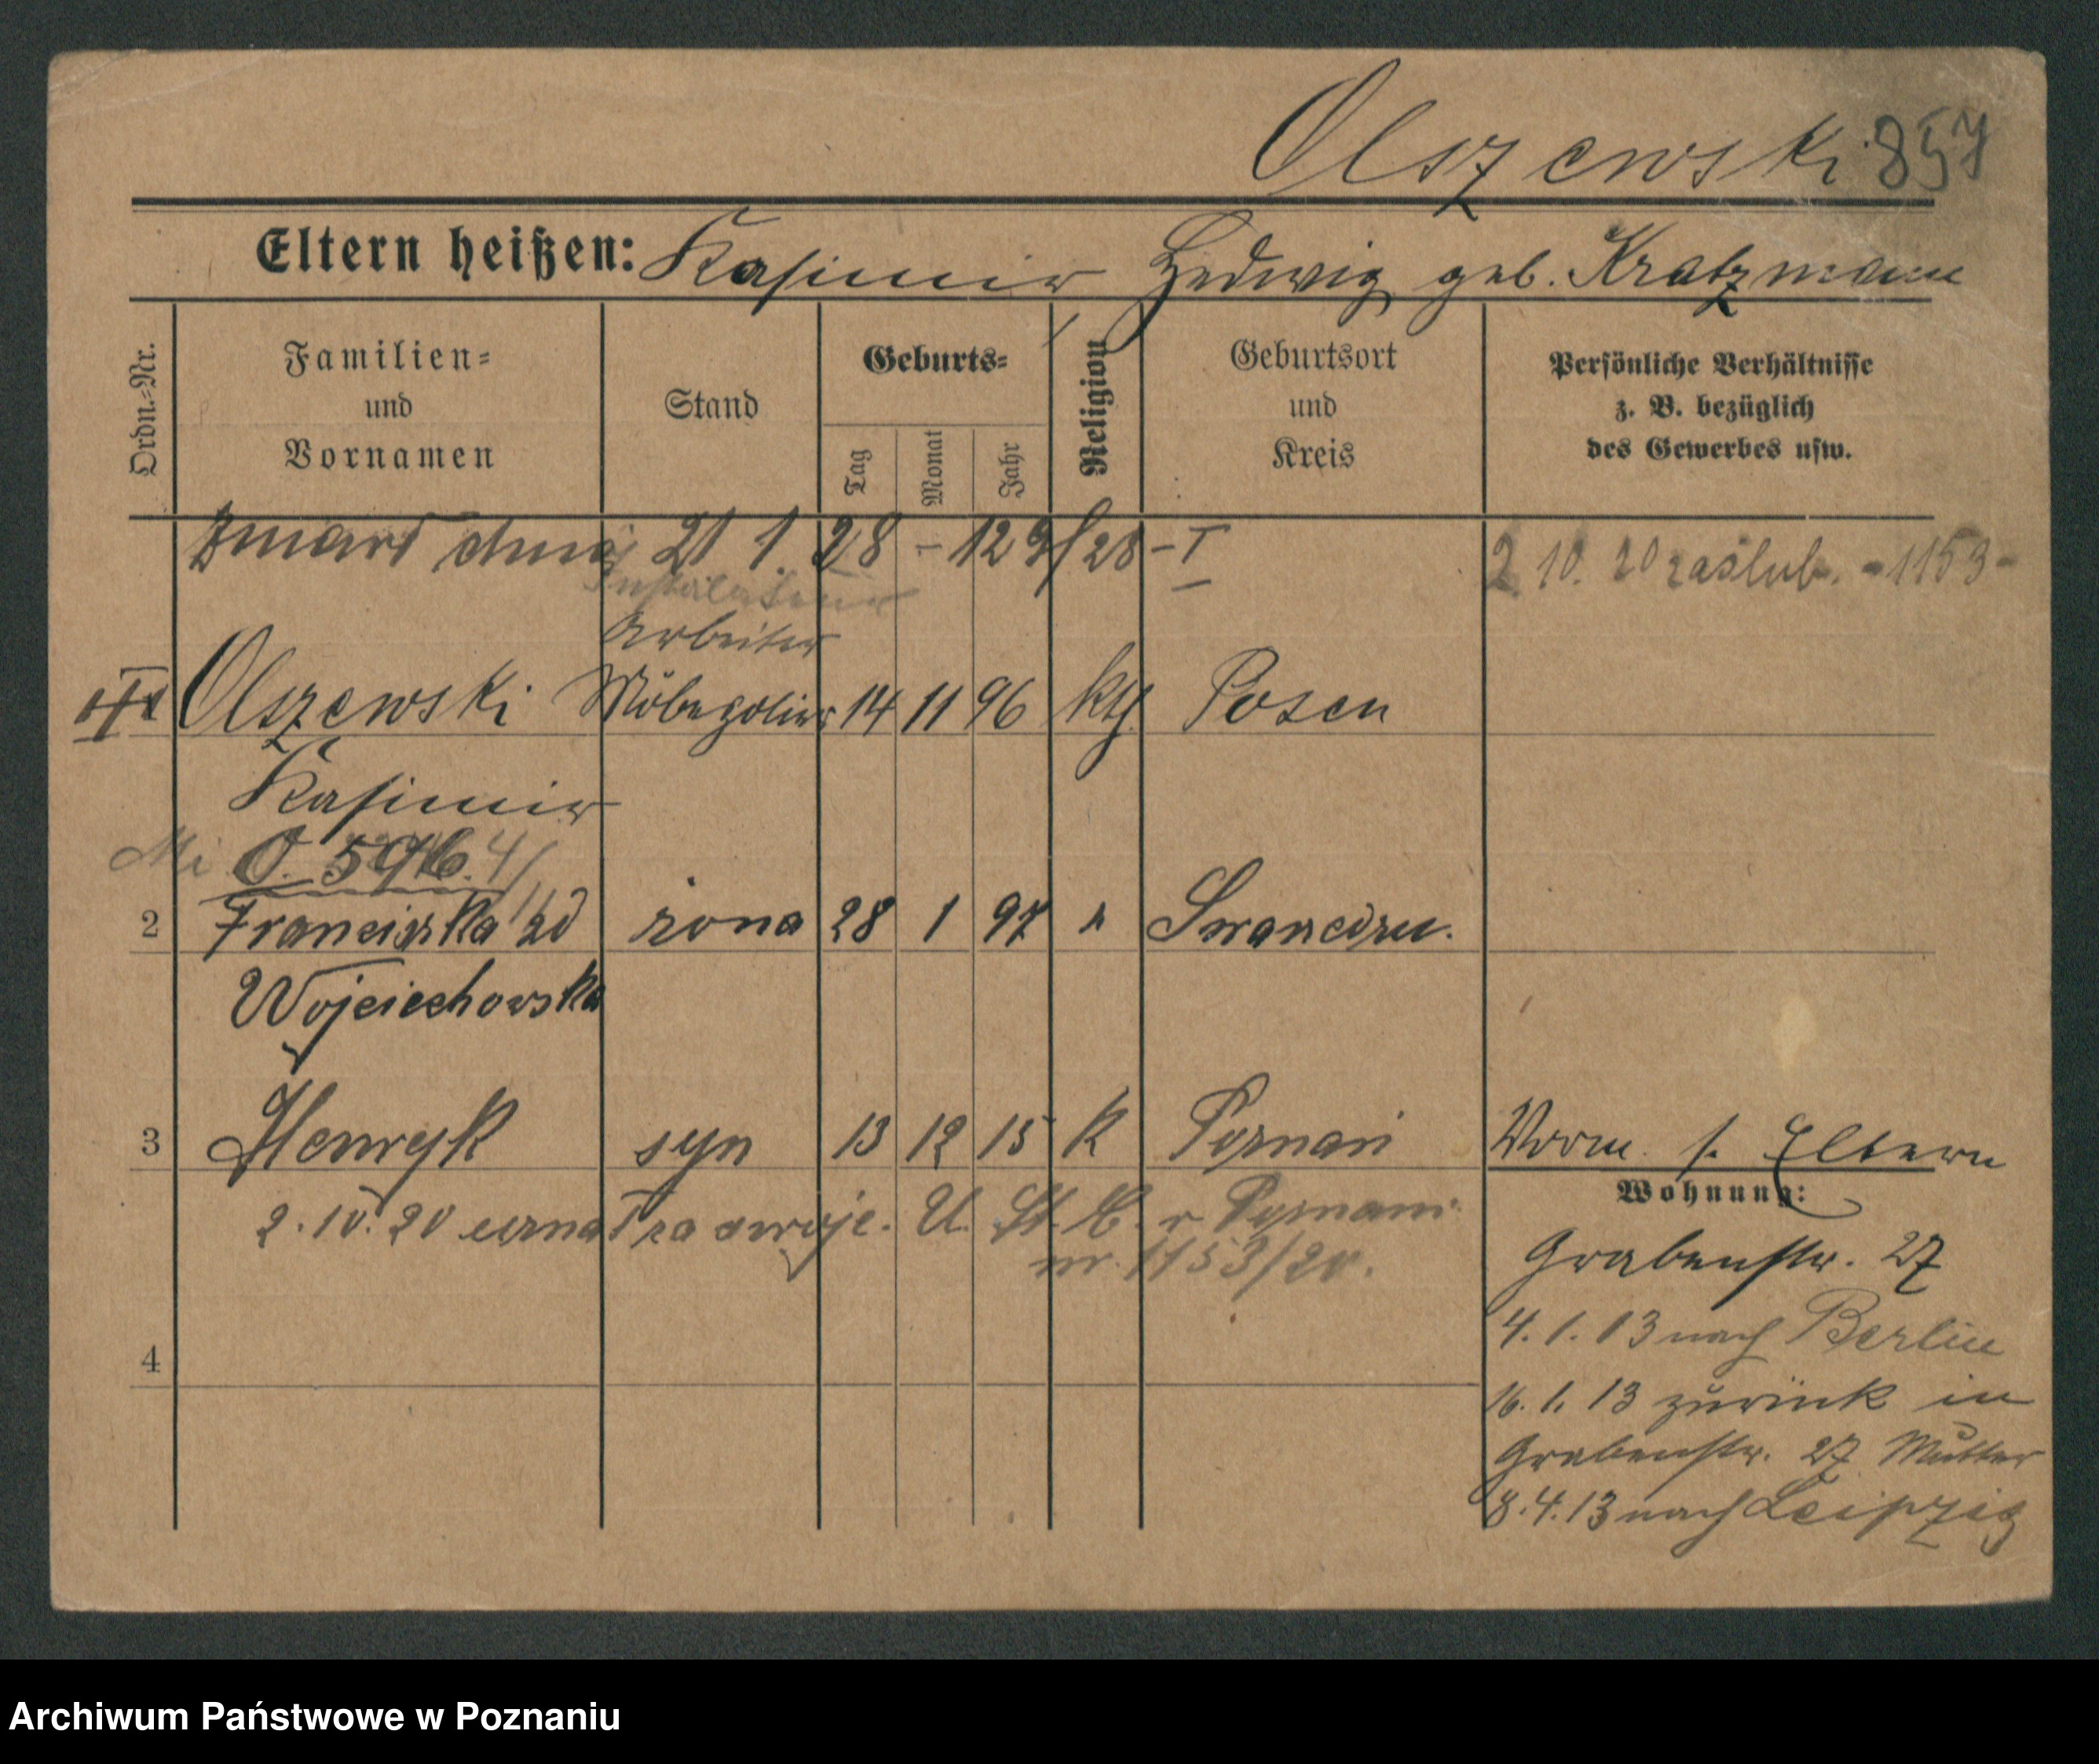 Olszewski 857
Eltern heißen: Kasimir Hedwig geb. Kratzmann
Ordn.-Nr.
Familien-
und
Vornamen
Stand
Geburts-
Tag
Monat
Jahr
Religion
Geburtsort
und
Kreis
Persönliche Verhältnisse
z. B. bezüglich
des Gewerbes usw.
Zmarł dnia 21 1. 28 - 129/28 - I
2 10. 20 zaślub. - 1153 -
Arbeiter
Olszewski Möbelpolier 14 11 96 kth Posen
Kasimir
O. 596.
2 Franciszka zd żona 28 1 97 Swarzędzu.
Wojciechowska
3 Henryk syn 13 12 15 K Poznań Worm. s. Eltern
2. 10. 20 uznał za swoje. U. St. C. v Poznaniu
nr. 1153/20.
4
Wohnung:
Grabenstr. 27
4. 1. 13 nach Berlin
16. 1. 13 zurück in
Grabenstr. 27 Mutter
8. 4. 13 nach Leipzig
Archiwum Państwowe w Poznaniu